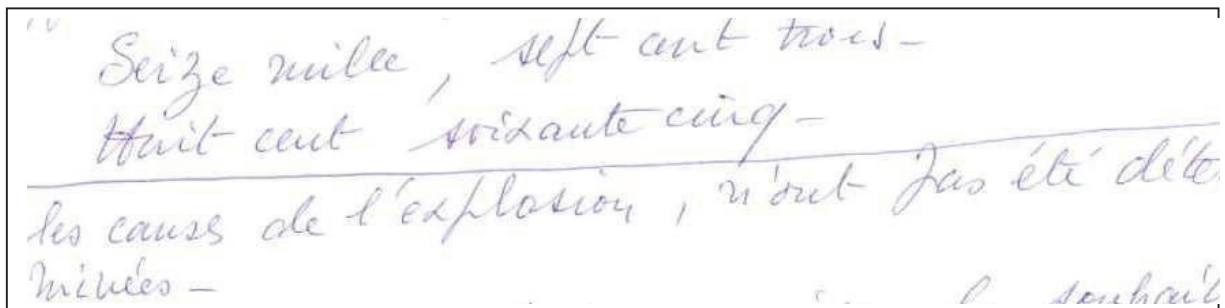 Seize mille, sept cent trois -
Huit cent soixante cinq -
les causes de l'explosion, n'ont pas été déte
minées -
souhait